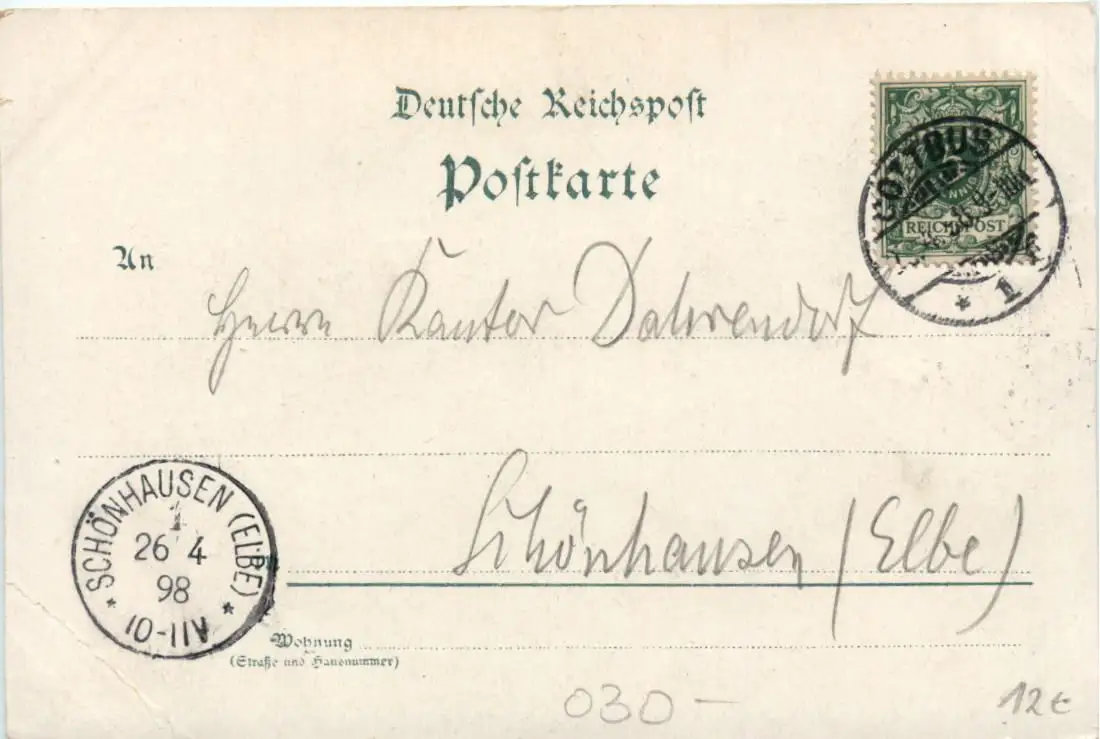 Deutsche Reichspost
Postkarte
COTTBUS
REICHSPOST
* 1
An
Herrn Kantor Dahrendorf
Schönhausen (Elbe)
* SCHÖNHAUSEN (ELBE) *
1
26 4
98
10-11V
Wohnung
(Straße und Hausnummer)
030 –
12€